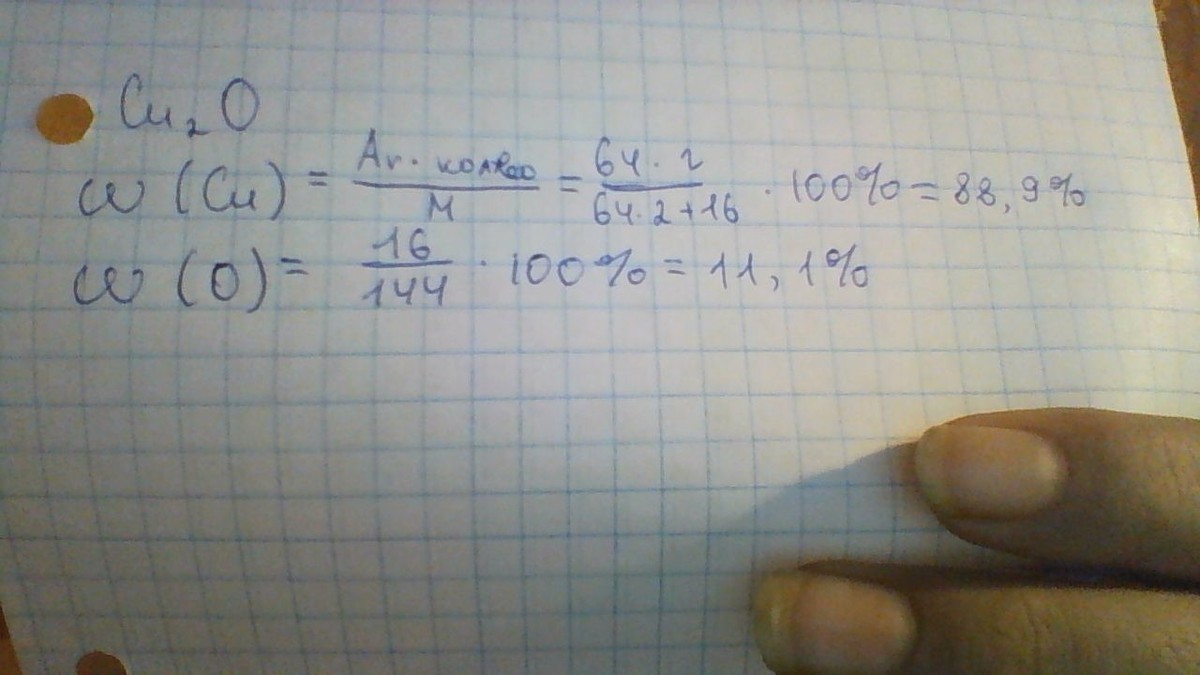 Cu₂O
ω (Cu) = Ar · колво / M = 64 · 2 / 64·2+16 · 100% = 88,9%
ω (O) = 16 / 144 · 100% = 11,1%